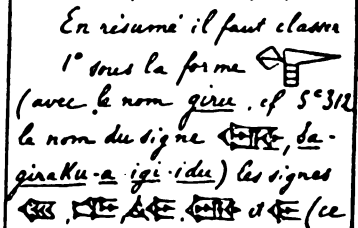 En résumé il faut classer
1° sous la forme
(avec le nom giru, cf Sᶜ 312
le nom du signe , ša-
giraKu-a igi-idu) les signes
, , , et (ce